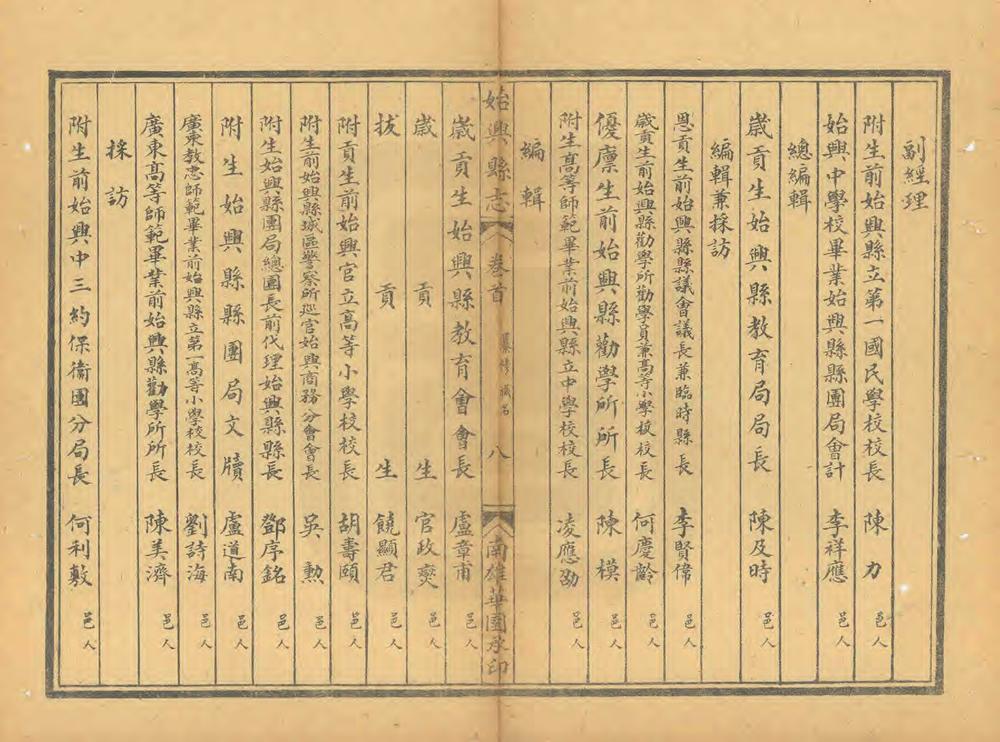 副經理
附生前始興縣立第一國民學校校長　陳力　邑人
始興中學校畢業始興縣縣團局會計　李祥應　邑人
總編輯
歲貢生始興縣教育局局長　陳及時　邑人
編輯兼採訪
恩貢生前始興縣縣議會議長兼臨時縣長　李賢偉　邑人
歲貢生前始興縣勸學所勸學員兼高等小學校校長　何慶齡　邑人
優廩生前始興縣勸學所所長　陳模　邑人
附生高等師範畢業前始興縣立中學校校長　凌應勛　邑人
編輯
始興縣志　卷首　纂修職名　八　南雄華園承印
歲貢生始興縣教育會會長　盧章甫　邑人
歲貢生　官政奭　邑人
拔貢生　饒顯君　邑人
附貢生前始興官立高等小學校校長　胡壽頤　邑人
附生前始興縣城區警察所巡官始興商務分會會長　吳勳　邑人
附生始興縣團局總團長前代理始興縣縣長　鄧序銘　邑人
附生始興縣縣團局文牘　盧道南　邑人
廣東教忠師範畢業前始興縣立第一高等小學校校長　劉詩海　邑人
廣東高等師範畢業前始興縣勸學所所長　陳美濟　邑人
採訪
附生前始興中三約保衞團分局長　何利敷　邑人